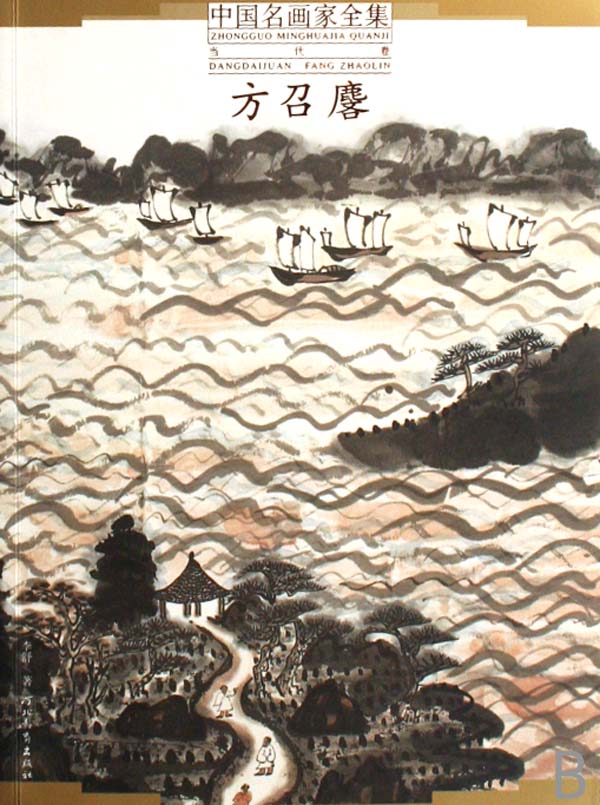 中国名画家全集
ZHONGGUO MINGHUAJIA QUANJI
当代卷
DANGDAIJUAN FANG ZHAOLIN
方召麐
著
河北教育出版社
B